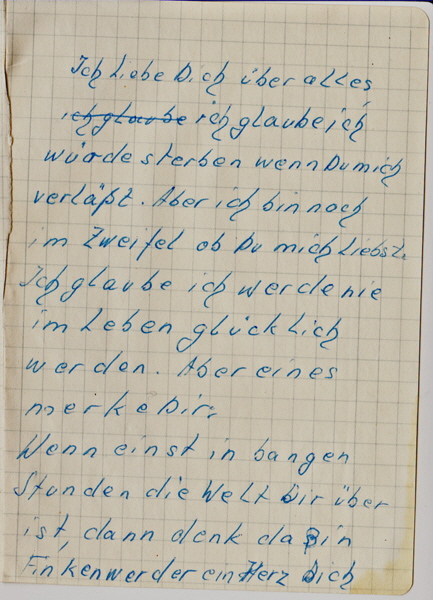 Ich Liebe Dich über alles,
ich glaube ich glaube ich
würde sterben wenn Du mich
verläßt. Aber ich bin noch
im Zweifel ob Du mich Liebst.
Ich glaube ich werde nie
im Leben glücklich
werden. Aber eines
merke Dir.
Wenn einst in bangen
Stunden die Welt Dir über
ist, dann denk daß in
Finkenwerder ein Herz Dich